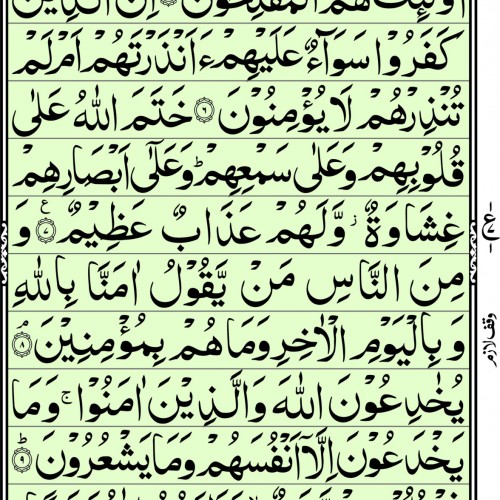 اُولٰٓئِكَ هُمُ الْمُفْلِحُوْنَ اِنَّ الَّذِيْنَ
كَفَرُوْا سَوَآءٌ عَلَيْهِمْ ءَاَنْذَرْتَهُمْ اَمْ لَمْ
تُنْذِرْهُمْ لَا يُؤْمِنُوْنَ ۶ خَتَمَ اللّٰهُ عَلٰى
قُلُوْبِهِمْ وَعَلٰى سَمْعِهِمْ ؕ وَعَلٰٓى اَبْصَارِهِمْ
غِشَاوَةٌ ز وَّلَهُمْ عَذَابٌ عَظِيْمٌ ۷ ع وَ
مِنَ النَّاسِ مَنْ يَّقُوْلُ اٰمَنَّا بِاللّٰهِ
وَ بِالْيَوْمِ الْاٰخِرِ وَمَا هُمْ بِمُؤْمِنِيْنَ ۘ ۸
يُخٰدِعُوْنَ اللّٰهَ وَالَّذِيْنَ اٰمَنُوْا ۚ وَمَا
يَخْدَعُوْنَ اِلَّاۤ اَنْفُسَهُمْ وَمَا يَشْعُرُوْنَ ؕ ۹
وقف لازم